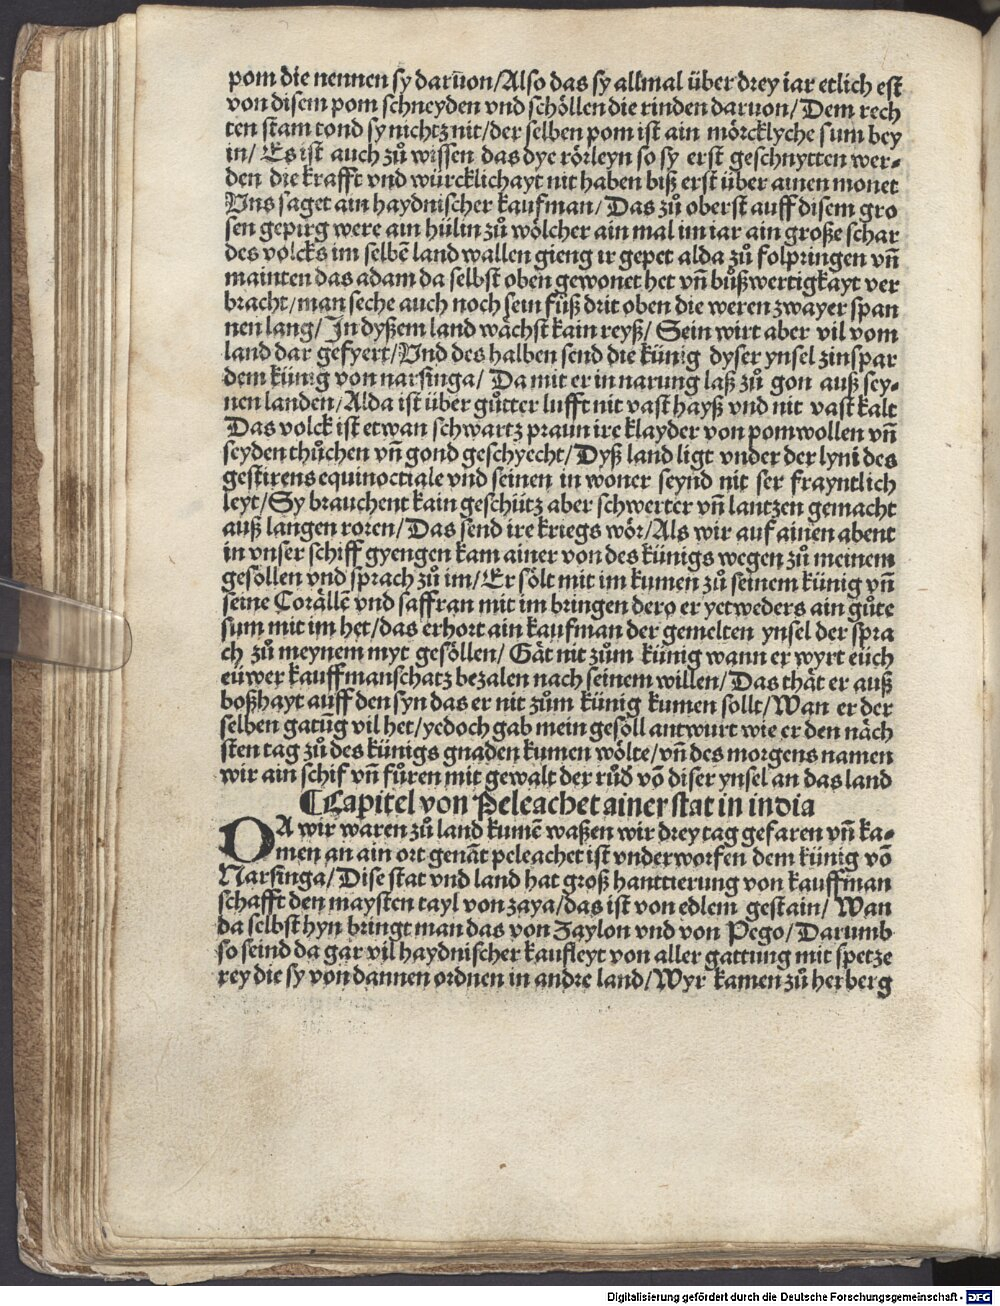 pom die nennen sy darūon/Also das sy allmal über drey iar etlich est
von disem pom schneyden vnd schöllen die rinden daruon/Dem rech
ten stam tond sy nichtz nit/der selben pom ist ain mörcklyche sum bey
in/ Es ist auch zů wissen das dye rörleyn so sy erst geschnytten wer⸗
den die krafft vnd würcklichayt nit haben biß erst über ainen monet
Vns saget ain haydnischer kaufman/Das zů oberst auff disem gro
sen gepirg were ain hülin zů wölcher ain mal im iar ain große schar
des volcks im selbē land wallen gieng ir gepet alda zů folpringen vñ
mainten das adam da selbst oben gewonet het vñ bůßwertigkayt ver
bracht/man seche auch noch sein fůß drit oben die weren zwayer span
nen lang/ In dyßem land wächst kain reyß/ Sein wirt aber vil vom
land dar gefyert/Vnd des halben send die künig dyser ynsel zinspar
dem künig von narsinga/ Da mit er in narung laß zů gon auß sey⸗
nen landen/Alda ist über gůtter lufft nit vast hayß vnd nit vast kalt
Das volck ist etwan schwartz praun ire klayder von pomwollen vñ
seyden thůchen vñ gond geschyecht/Dyß land ligt vnder der lyni des
gestirens equinoctiale vnd seinen in woner seynd nit ser frayntlich
leyt/Sy brauchent kain geschütz aber schwerter vñ lantzen gemacht
auß langen roren/Das send ire kriegs wör/Als wir auf ainen abent
in vnser schiff gyengen kam ainer von des künigs wegen zů meinem
gesöllen vnd sprach zů im/Er sölt mit im kumen zů seinem künig vñ
seine Corällē vnd saffran mit im bringen dero er yetweders ain gůte
sum mit im het/das erhort ain kaufman der gemelten ynsel der spra
ch zů meynem myt gesöllen/ Gät nit zům künig wann er wyrt eüch
eüwer kauffmanschatz bezalen nach seinem willen/Das thät er auß
boßhayt auff den syn das er nit zům künig kumen sollt/Wan er der
selben gatūg vil het/yedoch gab mein gesöll antwurt wie er den näch
sten tag zů des künigs gnaden kumen wölte/vñ des morgens namen
wir ain schif vñ fůren mit gewalt der růd vō diser ynsel an das land
⸿Capitel von Peleachet ainer stat in india
DA wir waren zů land kumē waßen wir drey tag gefaren vñ ka⸗
men an ain ort genāt peleachet ist vnderworfen dem künig vō
Narsinga/Dise stat vnd land hat groß hanttierung von kauffman
schafft den maysten tayl von zaya/das ist von edlem gestain/ Wan
da selbst hyn bringt man das von Zaylon vnd von Pego/Darumb
so seind da gar vil haydnischer kaufleyt von aller gattung mit spetze
rey die sy von dannen ordnen in andre land/Wyr kamen zů herberg
Digitalisierung gefördert durch die Deutsche Forschungsgemeinschaft - DFG